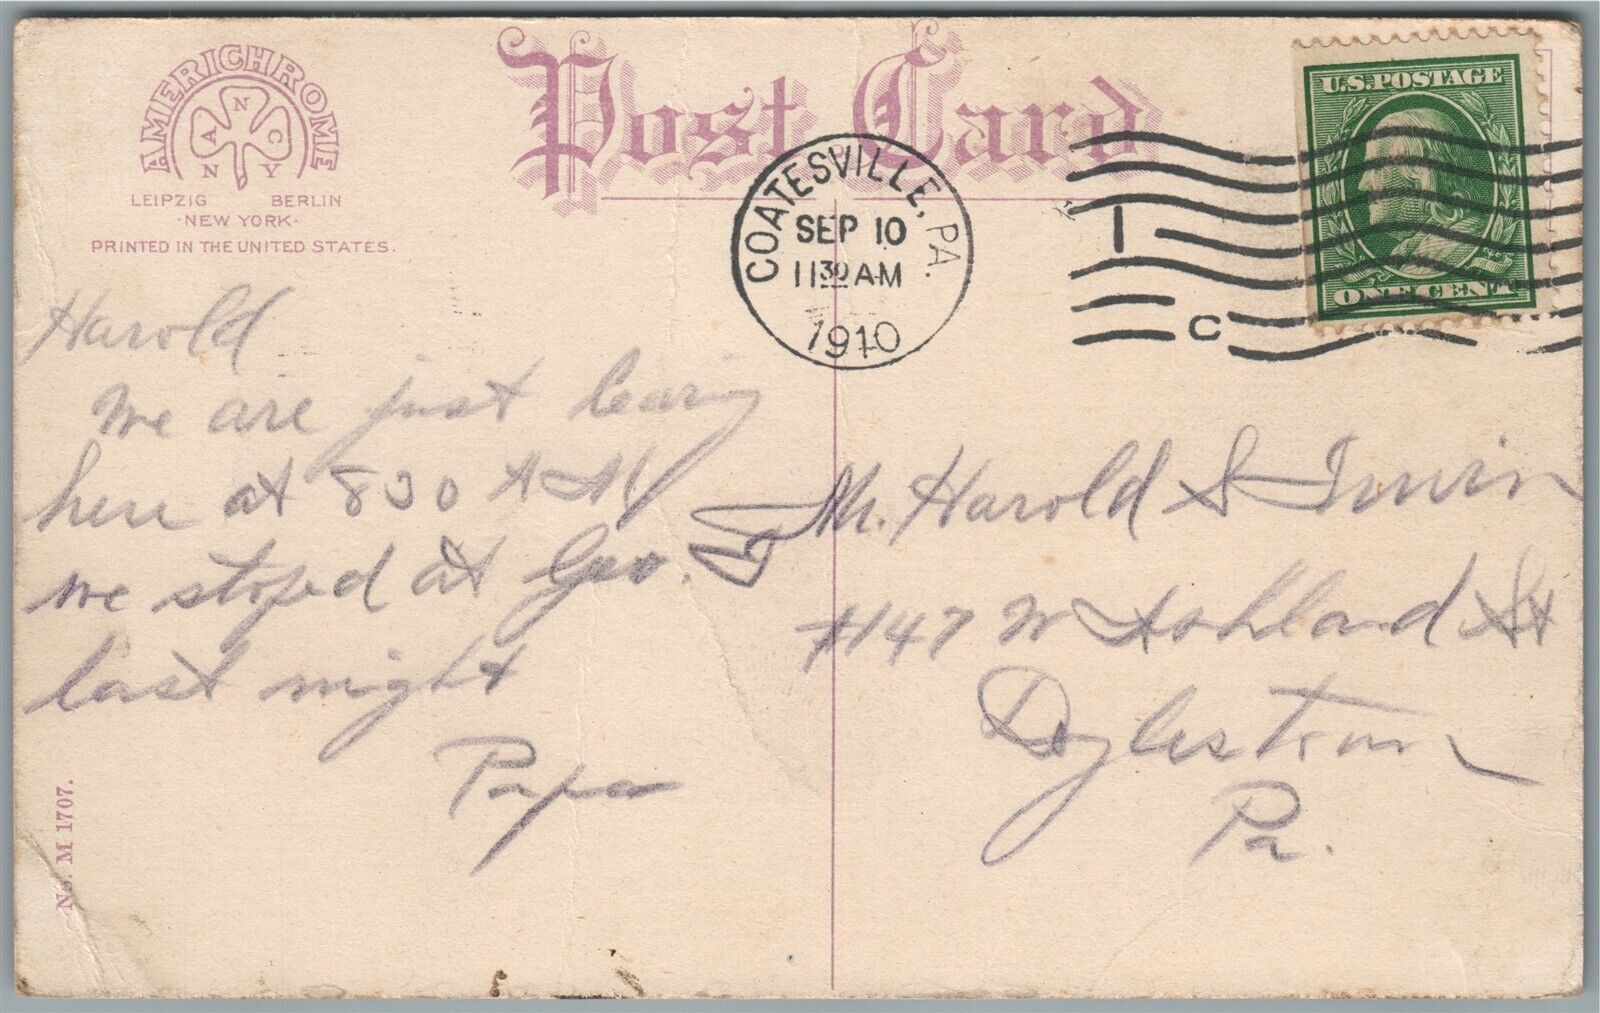 AMERICHROME
A N C
N N Y
LEIPZIG BERLIN
·NEW YORK·
PRINTED IN THE UNITED STATES.
Post Card
COATESVILLE, PA.
SEP 10
11 30 AM
1910
1
C
U.S. POSTAGE
ONE CENT
Harold
We are just leaving
here at 830 A M
we stoped at Geo.
last night
Papa
Mr. Harold S Irwin
#147 W Ashland St
Doylestown
Pa.
No. M 1707.